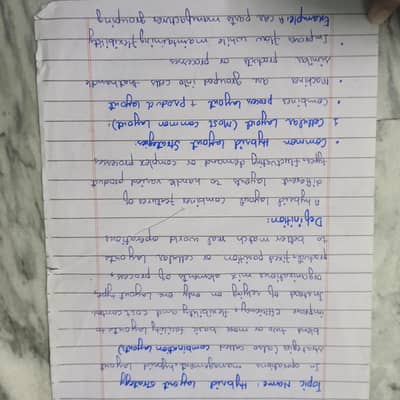 Topic Name: Hybrid layout strategy
In operations management, hybrid layout
strategies (also called combination layouts)
blend two or more basic facility layouts to
improve efficiency, flexibility and cost control
Instead of relying on only one layout type,
organizations mix elements of process,
product, fixed position or cellular layouts
to better match real world operations
Definition:
A hybrid layout combines features of
different layouts to handle varied product
types, fluctuating demand or complex processes
• Common Hybrid layout Strategies
1 Cellular Layout (Most common layout).
• Combines process layout + product layout
• Machines are grouped into cells that handle
similar products or processes
• Improves flow while maintaining flexibility
Example: A car parts manufacturer grouping